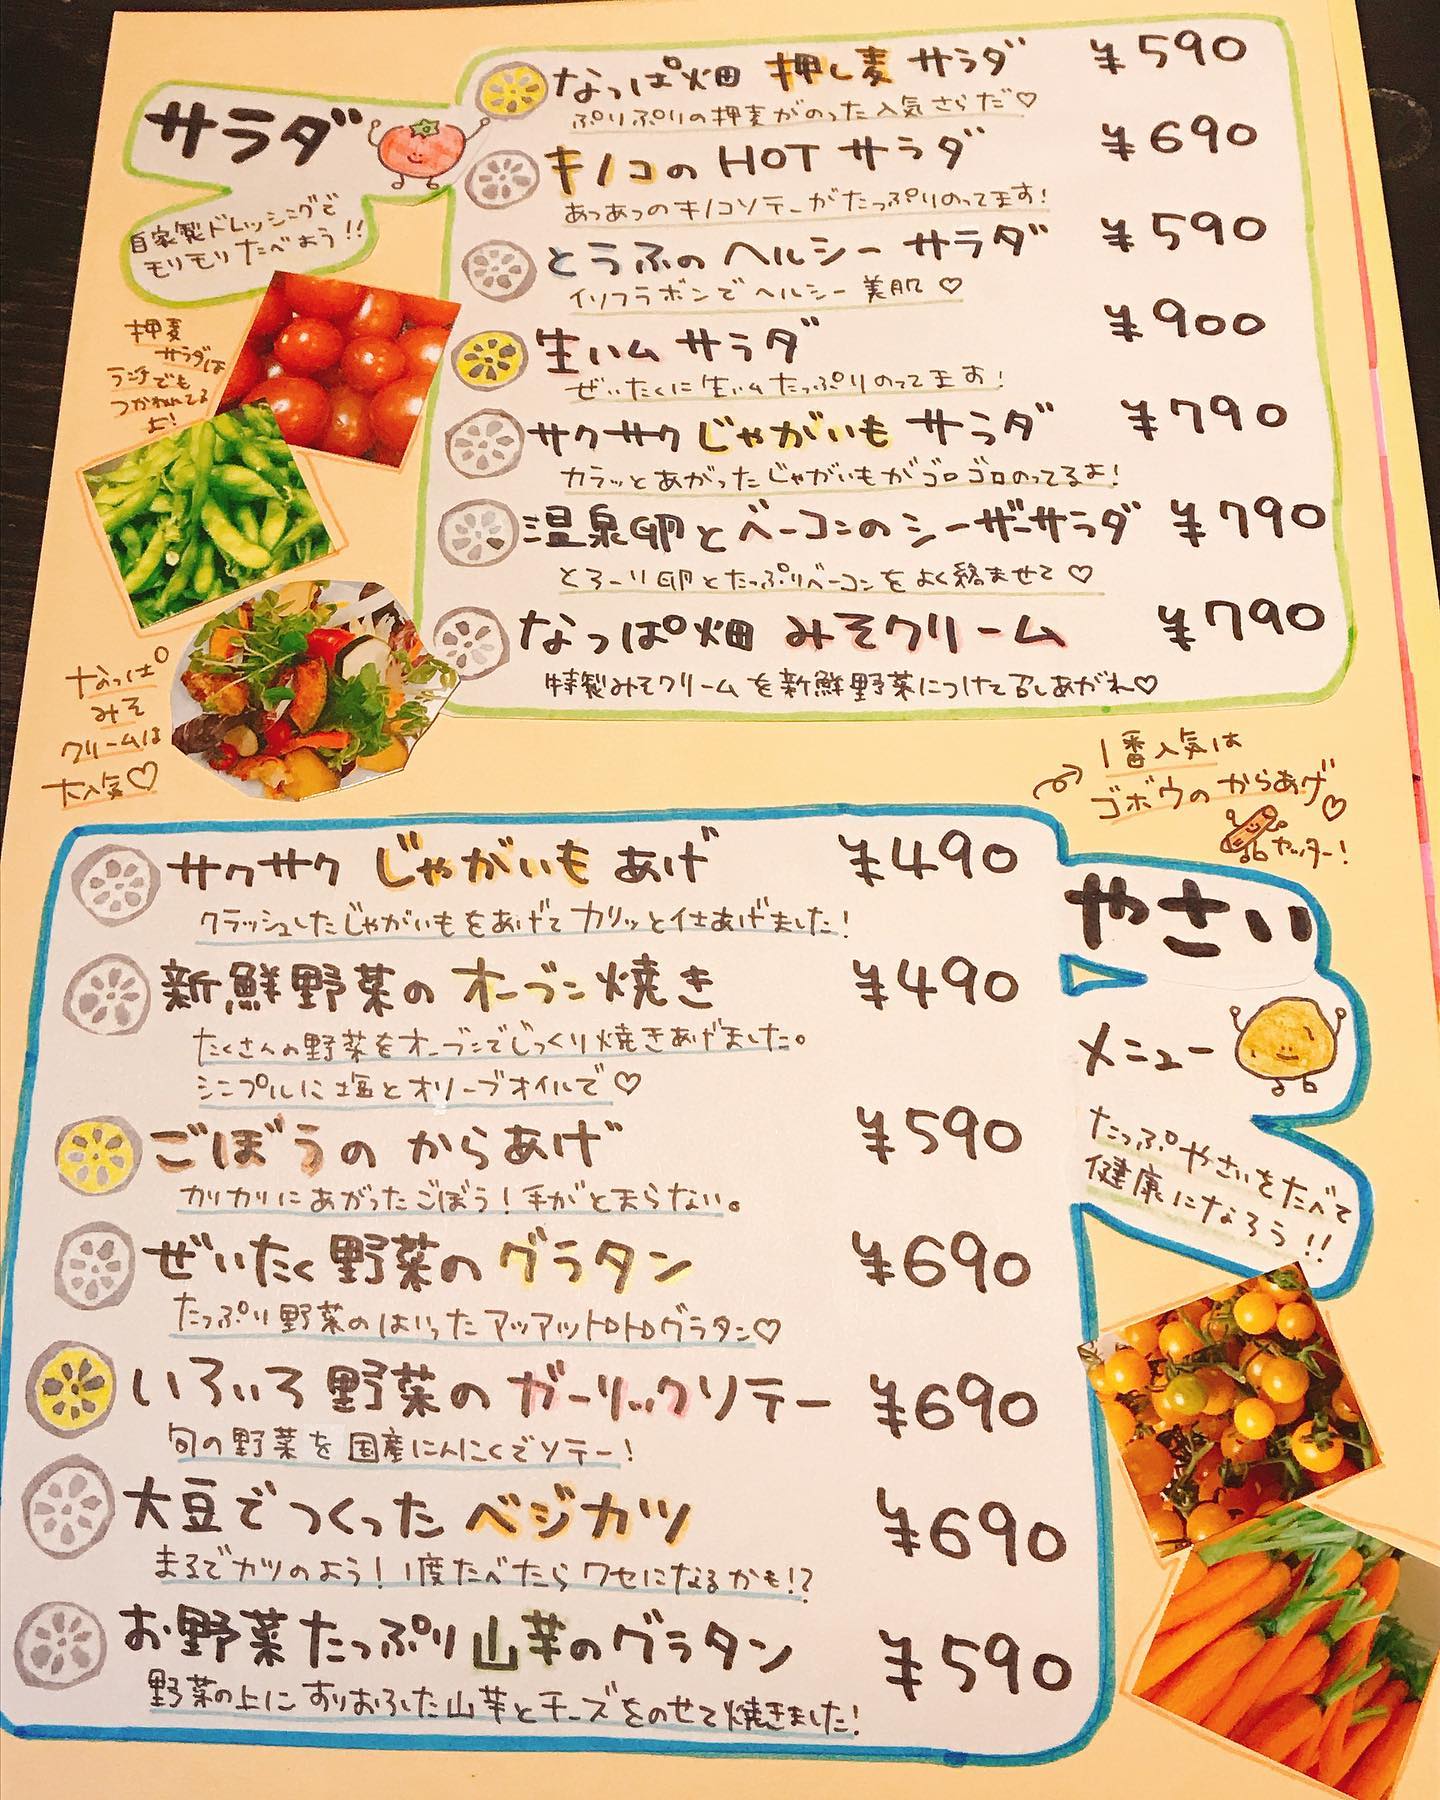 サラダ
自家製ドレッシングで
モリモリたべよう!!
なっぱ畑 押し麦 サラダ ¥590
ぷりぷりの押麦がのった人気さらだ♡
キノコの HOT サラダ ¥690
あつあつのキノコソテーがたっぷりのってます!
とうふの ヘルシー サラダ ¥590
イソフラボンでヘルシー 美肌♡
生ハム サラダ ¥900
ぜいたくに生ハムたっぷりのってます!
サクサク じゃがいも サラダ ¥790
カラッとあがったじゃがいもがゴロゴロのってるよ!
温泉卵とベーコンのシーザーサラダ ¥790
とろーり卵とたっぷりベーコンをよく絡ませて♡
なっぱ畑 みそクリーム ¥790
特製みそクリームを新鮮野菜につけて召しあがれ♡
押麦
サラダは
ランチでも
つかわれてる
よ!
なっぱ
みそ
クリームは
大人気♡
1番人気は
ゴボウのからあげ♡
ヤッター!
やさい
メニュー
たっぷやさいをたべて
健康になろう!!
サクサク じゃがいも あげ ¥490
クラッシュしたじゃがいもをあげてカリッと仕あげました!
新鮮野菜の オーブン焼き ¥490
たくさんの野菜をオーブンでじっくり焼きあげました。
シンプルに塩とオリーブオイルで♡
ごぼうの からあげ ¥590
カリカリにあがったごぼう!手がと天らない。
ぜいたく野菜の グラタン ¥690
たっぷり野菜のはいったアッアットロトログラタン♡
いろいろ野菜の ガーリックソテー ¥690
旬の野菜を国産にんにくでソテー!
大豆でつくった ベジカツ ¥690
まるでカツのよう!1度たべたらワセになるかも!?
お野菜たっぷり山芋のグラタン ¥590
野菜の上にすりおろした山芋とチーズをのせて焼きました!